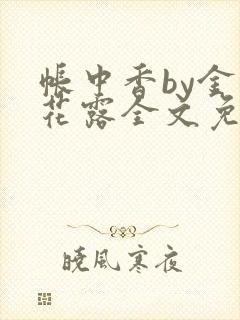 帐中香by金
花露全文免
晓风寒夜